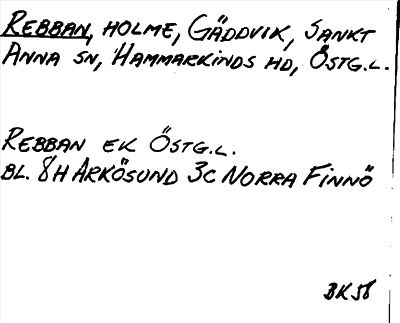 REBBAN, HOLME, GÄDDVIK, SANKT
ANNA SN, HAMMARKINDS HD, ÖSTG.L.
REBBAN EK ÖSTG.L.
BL. 8H ARKÖSUND 3C NORRA FINNÖ
BK58